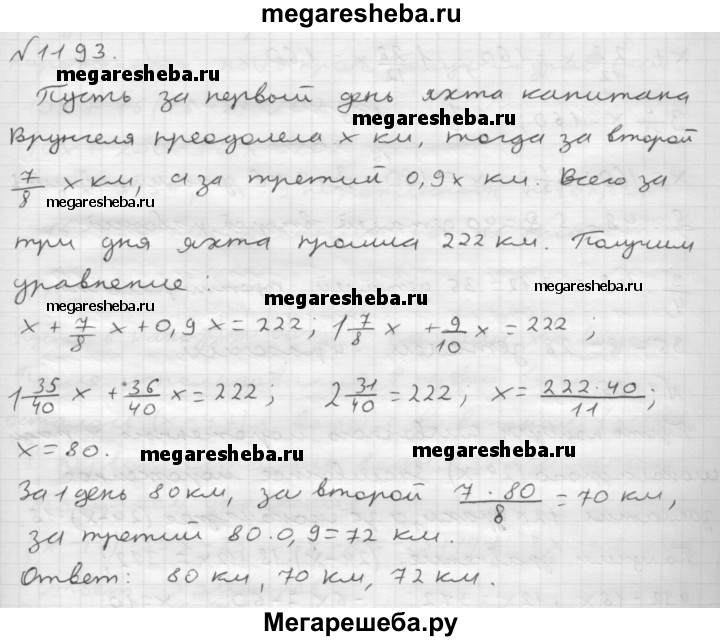 megaresheba.ru
№1193.
megaresheba.ru
Пусть за первый день яхта капитана
megaresheba.ru
Врунгеля преодолела x км, тогда за второй
7/8 x км, а за третий 0,9x км. Всего за
megaresheba.ru
три дня яхта прошла 222 км. Получим
уравнение:
megaresheba.ru megaresheba.ru megaresheba.ru
x + 7/8 x + 0,9 x = 222; 1 7/8 x + 9/10 x = 222;
1 35/40 x + 36/40 x = 222; 2 31/40 = 222; x = 222·40/11;
x = 80.
megaresheba.ru megaresheba.ru
За 1 день 80 км, за второй 7·80/8 = 70 км,
за третий 80·0,9 = 72 км.
Ответ: 80 км, 70 км, 72 км.
Мегарешеба.ру